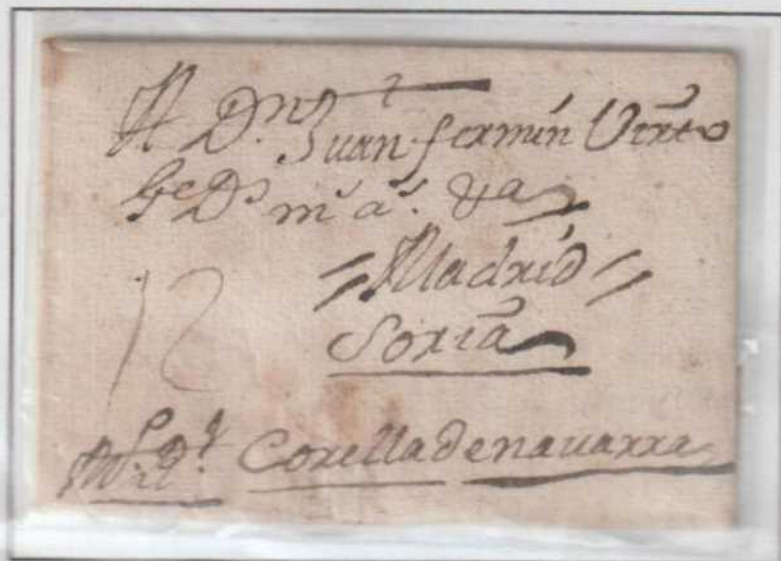 A Dn Juan fermin Virto
Ge Ds m. a.s
=Madrid=
Soria
12
Corella de navarra